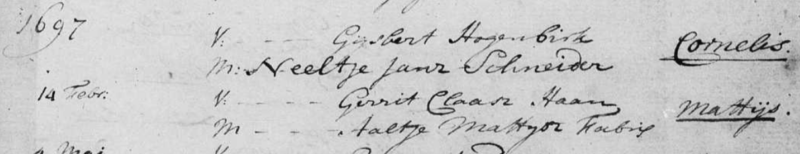 1697
V: Gysbert Hogenbirk Cornelis.
M: Neeltje Janz Schneider
14 Febr. V: Gerrit Claasz Haan Mattijs.
M Aaltje Mattysz Fabris
Maj V